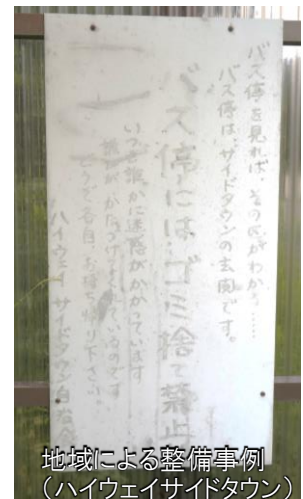 バス停を見れば、その区がわかる……
バス停は、サイドタウンの玄関です。
バス停には、ゴミ捨て禁止
いつも誰かに迷惑がかかっています
誰かがかたづけてくれているのです
各自、お持ち帰り下さい。
ハイウェイサイドタウン
地域による整備事例
（ハイウェイサイドタウン）